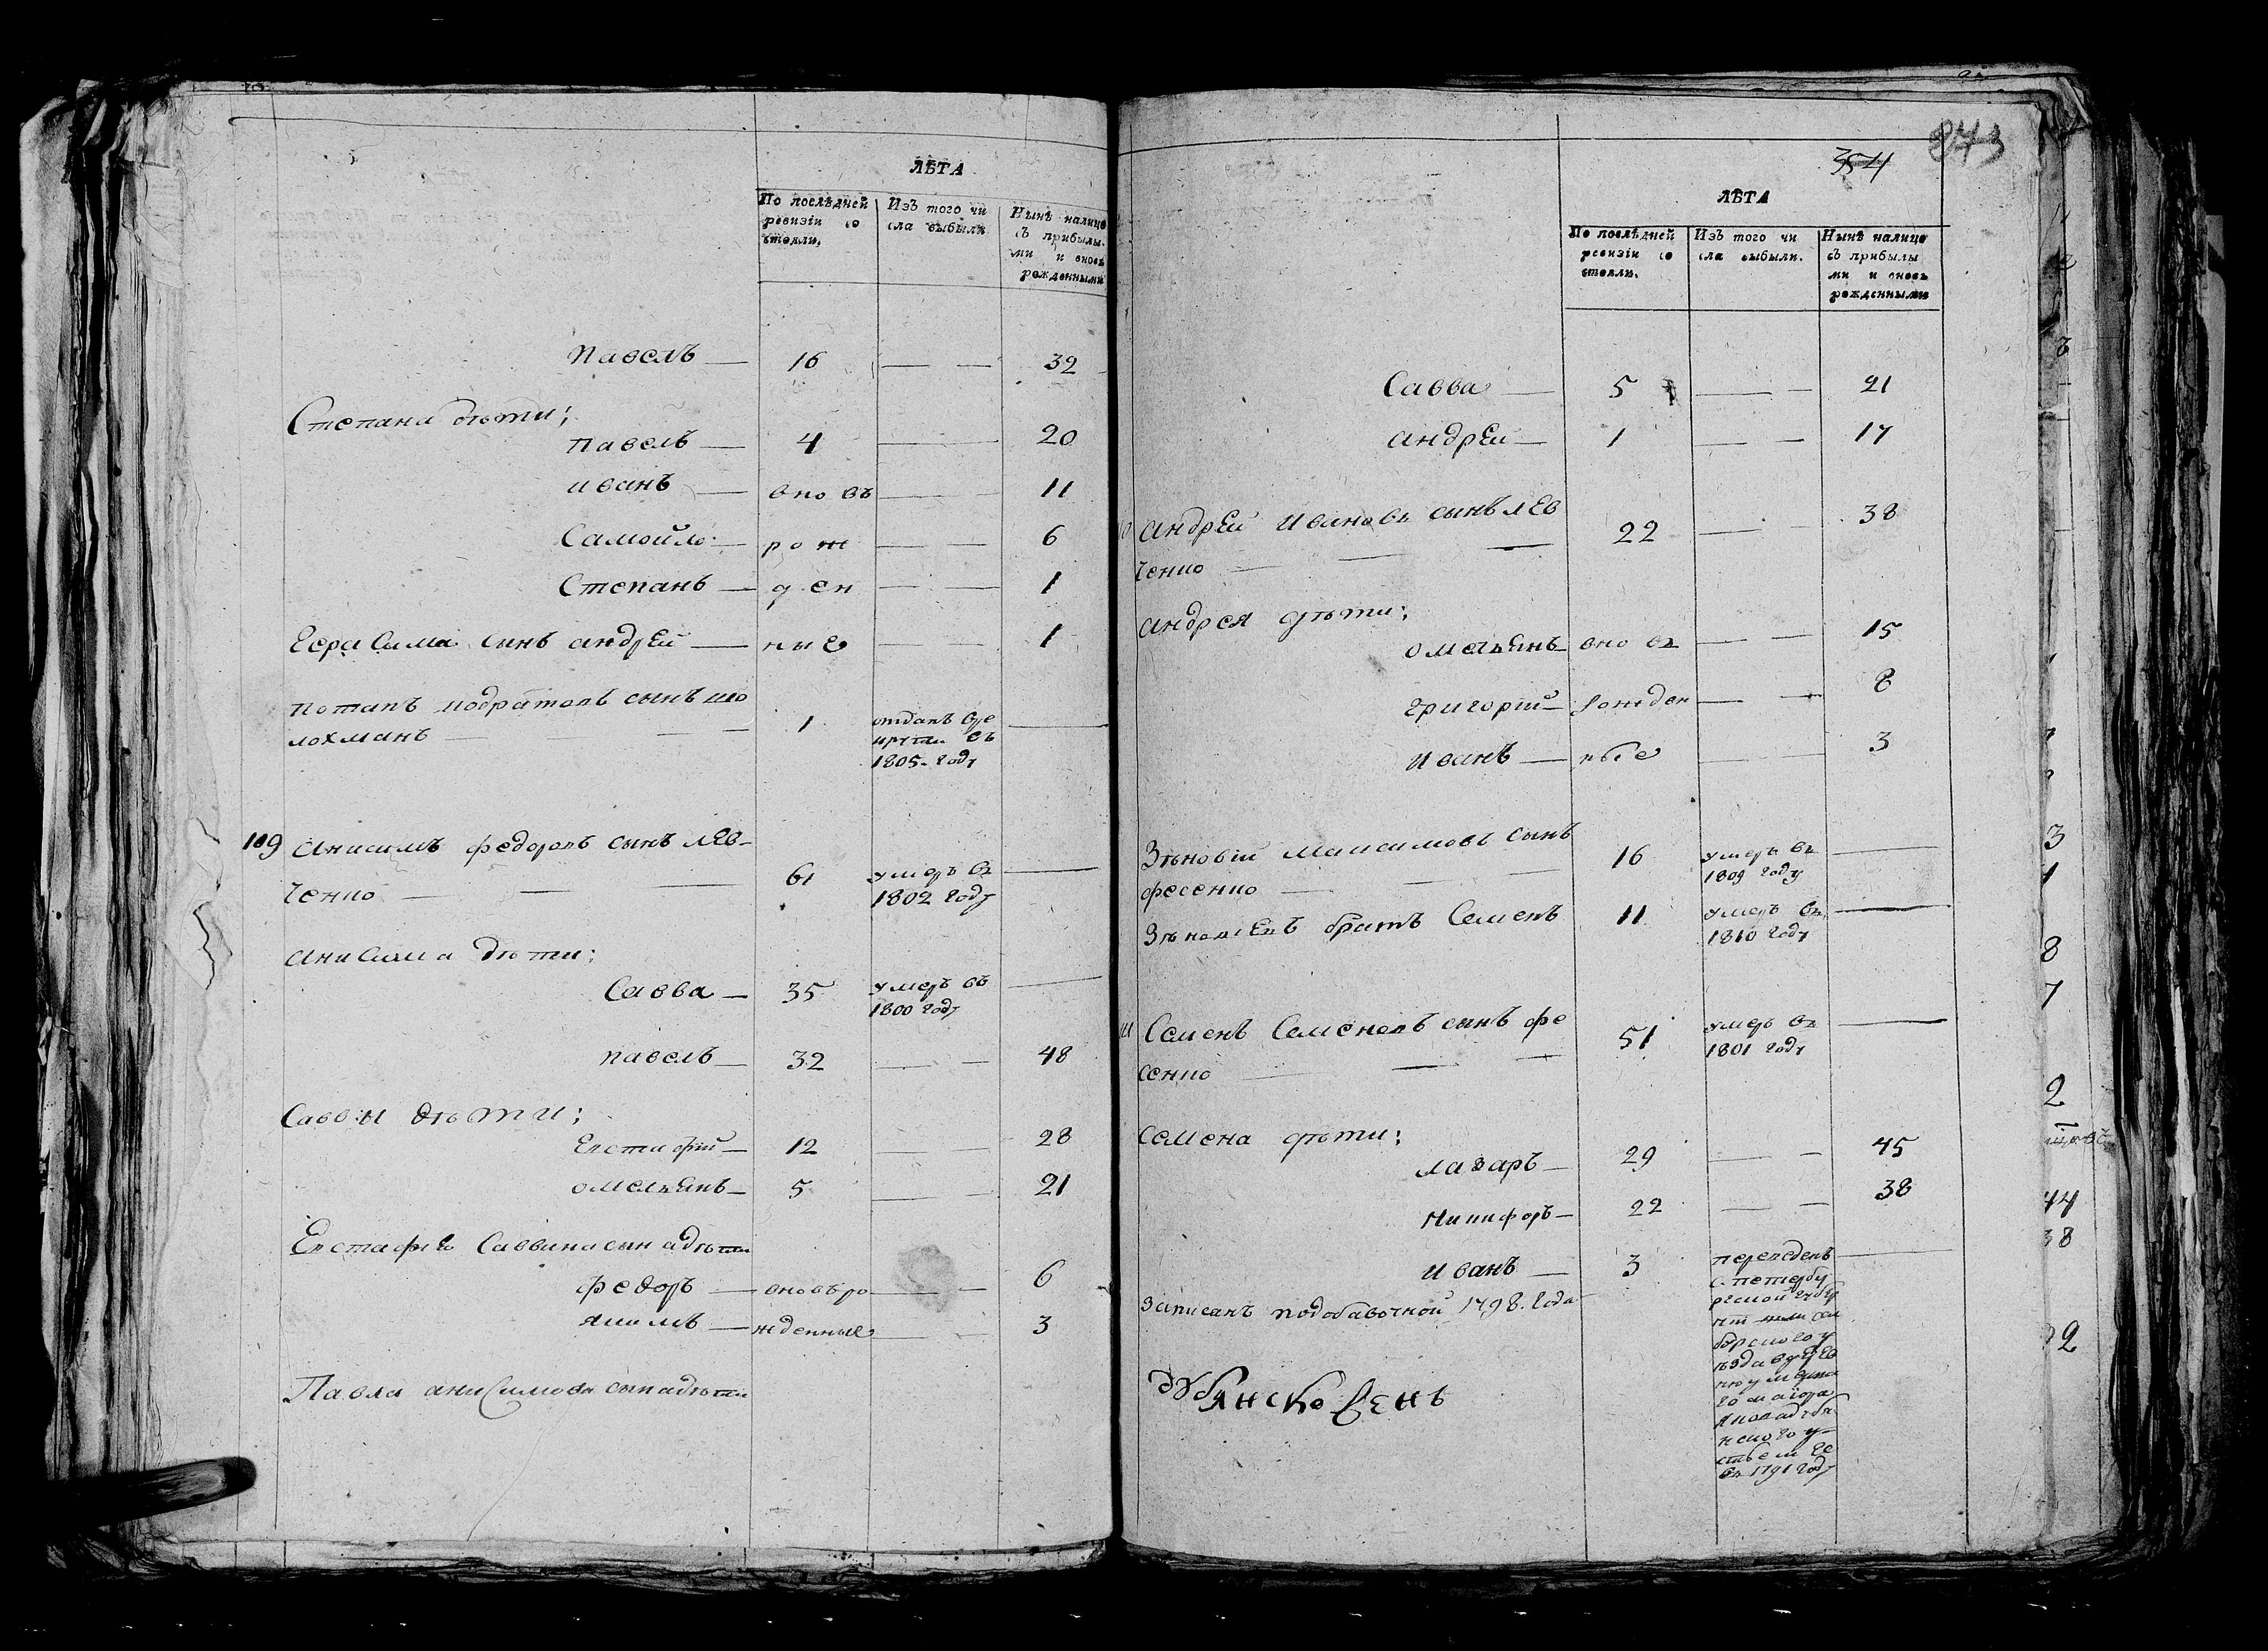 ЛѢТА
По послѣдней ревизіи со стояли.
Изъ того чи сла выбыли
Нынѣ налицо съ прибылы- ми и вновь рожденными
Павелъ — 16 — — 32
Степана дѣти;
Павелъ — 4 — 20
иванъ — вно въ — 11
Самойло — рож — — 6
Степанъ — ден — — 1
Герасима сынъ андрей — ные — — 1
Потапъ сынъ шо
лохманъ — — — 1 —
отданъ в ре
круты въ
1805. году
109 Анисимъ федоровъ сынъ лев-
ченко — — — 61 —
умеръ въ
1802 году
анисима дѣти;
Савва — 35 —
умеръ въ
1800 году
павелъ — 32 — — 48
Саввы дѣти;
Евстафій — 12 — — 28
омельянъ — 5 — — 21
Евстафія Саввина сына дѣти
федоръ — вновь ро — — 6
якимъ — жденные — — 3
Павла анисимова сына дѣти
354
843
ЛѢТА
По послѣдней ревизіи со стояли.
Изъ того чи сла выбыли.
Нынѣ налицо съ прибылы ми и вновь рожденными
Савва — 5 — — 21
андрей — 1 — — 17
андрей Ивановъ сынъ лев
ченко — — — 22 — 38
андрея дѣти;
омельянъ — вно въ — — 15
григорій — рожден — — 8
иванъ — ные — 3
Зѣновій максимовъ сынъ
фесенко — — — 16 —
умеръ въ
1809 году
Зѣновіевъ братъ Семенъ 11 —
умеръ въ
1810 году
111 Семенъ Семеновъ сынъ фе
сенко — — — 51 —
умеръ въ
1801 году
Семена дѣти;
лазаръ — 29 — — 45
Никифоръ — 22 — — 38
иванъ — 3 —
Записанъ по добавочной 1798. Года
переведенъ
с. петербу
ргской губер
ніи
маіора
въ 1791 году